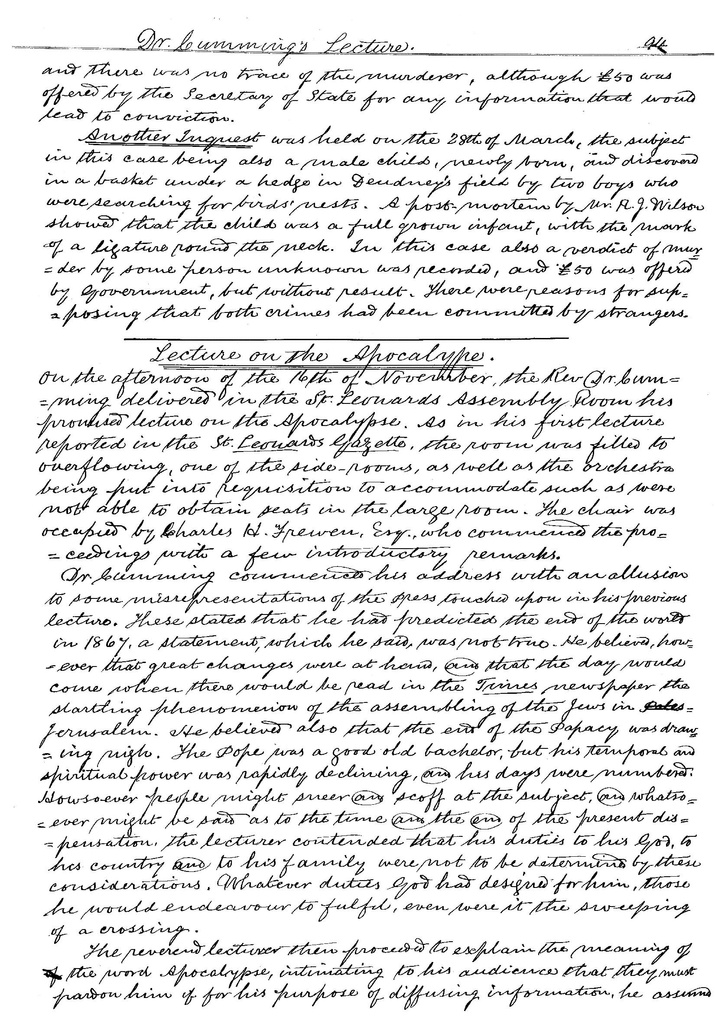 Dr. Cumming's Lecture. 94
and there was no trace of the murderer, although £50 was
offered by the Secretary of State for any information that would
lead to conviction.
Another Inquest was held on the 28th of March, the subject
in this case being also a male child, newly born, and discovered
in a basket under a hedge in Deudney's field by two boys who
were searching for birds' nests. A post-mortem by Mr. R. J. Wilson
showed that the child was a full grown infant, with the mark
of a ligature round the neck. In this case also a verdict of mur=
=der by some person unknown was recorded, and £50 was offered
by Government, but without result. There were reasons for sup=
=posing that both crimes had been committed by strangers.
Lecture on the Apocalypse.
On the afternoon of the 16th of November, the Rev Dr. Cum=
=ming delivered in the St. Leonards Assembly Room his
promised lecture on the Apocalypse. As in his first lecture
reported in the St. Leonards Gazette, the room was filled to
overflowing, one of the side-rooms, as well as the orchestra
being put into requisition to accommodate such as were
not able to obtain seats in the large room. The chair was
occupied by Charles H. Frewen, Esq., who commenced the pro=
=ceedings with a few introductory remarks.
Dr. Cumming commenced his address with an allusion
to some misrepresentations of the press touched upon in his previous
lecture. These stated that he had predicted the end of the world
in 1867, a statement, which he said, was not true. He believed, how=
=ever that great changes were at hand, and that the day would
come when there would be read in the Times newspaper the
startling phenomenon of the assembling of the Jews in
Jerusalem. He believed also that the end of the Papacy was draw=
=ing nigh. The Pope was a good old bachelor, but his temporal and
spiritual power was rapidly declining, and his days were numbered.
Howsoever people might sneer and scoff at the subject, and whatso=
=ever might be said as to the time and the end of the present dis=
=pensation, the lecturer contended that his duties to his God, to
his country and to his family were not to be determined by these
considerations. Whatever duties God had designed for him, those
he would endeavour to fulfil, even were it the sweeping
of a crossing.
The reverend lecturer then proceeded to explain the meaning of
the word Apocalypse, intimating to his audience that they must
pardon him if for his purpose of diffusing information, he assumed